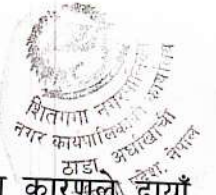 शितगंगा नगरपालिका
नगर कार्यपालिकाको कार्यालय
ठाडा, अर्घाखाँची
प्रदेश, नेपाल
कारणले दायाँ